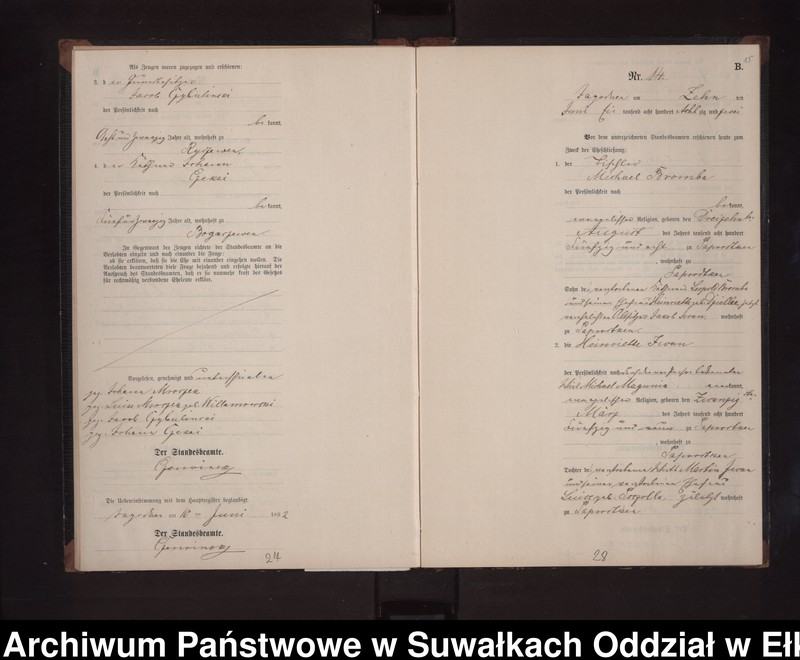 Als Zeugen waren zugezogen und erschienen:
3. der Grundbesitzer
Jacob Gybulinski
der Persönlichkeit nach
be kannt,
Acht und zwanzig Jahre alt, wohnhaft zu
4. der
Johann
Gekai
der Persönlichkeit nach
be kannt,
Jahre alt, wohnhaft zu
Bogaczewen
In Gegenwart der Zeugen richtete der Standesbeamte an die
Verlobten einzeln und nach einander die Frage:
ob sie erklären, daß sie die Ehe mit einander eingehen wollen. Die
Verlobten beantworteten diese Frage bejahend und erfolgte hierauf der
Ausspruch des Standesbeamten, daß er sie nunmehr kraft des Gesetzes
für rechtmäßig verbundene Eheleute erkläre.
Vorgelesen, genehmigt und unterschrieben
gez. Johann
gez. Luise geb. Willamowski
gez. Jacob Gybulinski
gez. Johann Gekai
Der Standesbeamte.
Die Uebereinstimmung mit dem Hauptregister beglaubigt
am 10 ten Juni 1882
Der Standesbeamte.
24
15
B.
Nr. 14.
am Zehn ten
Juni tausend acht hundert Acht zig und zwei
Vor dem unterzeichneten Standesbeamten erschienen heute zum
Zweck der Eheschließung:
1. der Tischler
Michael Bromba
der Persönlichkeit nach
be kannt,
evangelischer Religion, geboren den Dreizehnten
August des Jahres tausend acht hundert
fünfzig und acht zu Saparotken
, wohnhaft zu
Saparotken
Sohn des verstorbenen Käthners Leopold Bromba
und seiner Ehefrau Henriette geb. jetzt
verehelichten Altsitzer Jacob Iwan wohnhaft
zu Saparotken
2. die Heinriette Iwan
der Persönlichkeit nach
Wirth Michael Magunia anerkannt,
evangelischer Religion, geboren den Zwanzigsten
März des Jahres tausend acht hundert
fünfzig und neun zu Saparotken
, wohnhaft zu
Saparotken
Tochter des verstorbenen Wirth Martin Iwan
und seiner verstorbenen Ehefrau
Luise geb. zuletzt wohnhaft
zu Saparotken
28
Archiwum Państwowe w Suwałkach Oddział w Eł